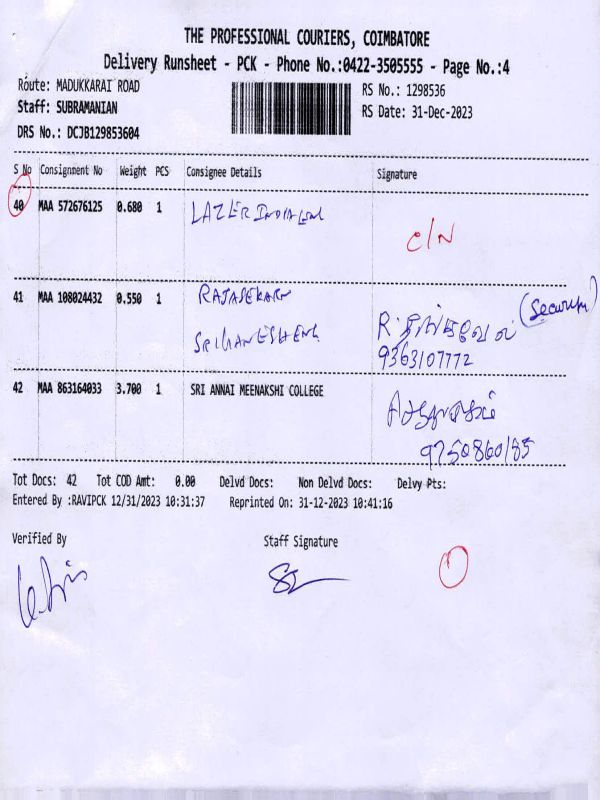 THE PROFESSIONAL COURIERS, COIMBATORE
Delivery Runsheet - PCK - Phone No.:0422-3505555 - Page No.:4
Route: MADUKKARAI ROAD
RS No.: 1298536
Staff: SUBRAMANIAN
RS Date: 31-Dec-2023
DRS No.: DCJB129853604
S No Consignment No Weight PCS Consignee Details Signature
40 MAA 572676125 0.680 1 LAZER INDIA ENG
C/N
41 MAA 108024432 0.550 1 RAJASEKAR
(Security)
R.
9363107772
42 MAA 863164033 3.700 1 SRI ANNAI MEENAKSHI COLLEGE
9750860185
Tot Docs: 42 Tot COD Amt: 0.00 Delvd Docs: Non Delvd Docs: Delvy Pts:
Entered By :RAVIPCK 12/31/2023 10:31:37 Reprinted On: 31-12-2023 10:41:16
Verified By Staff Signature